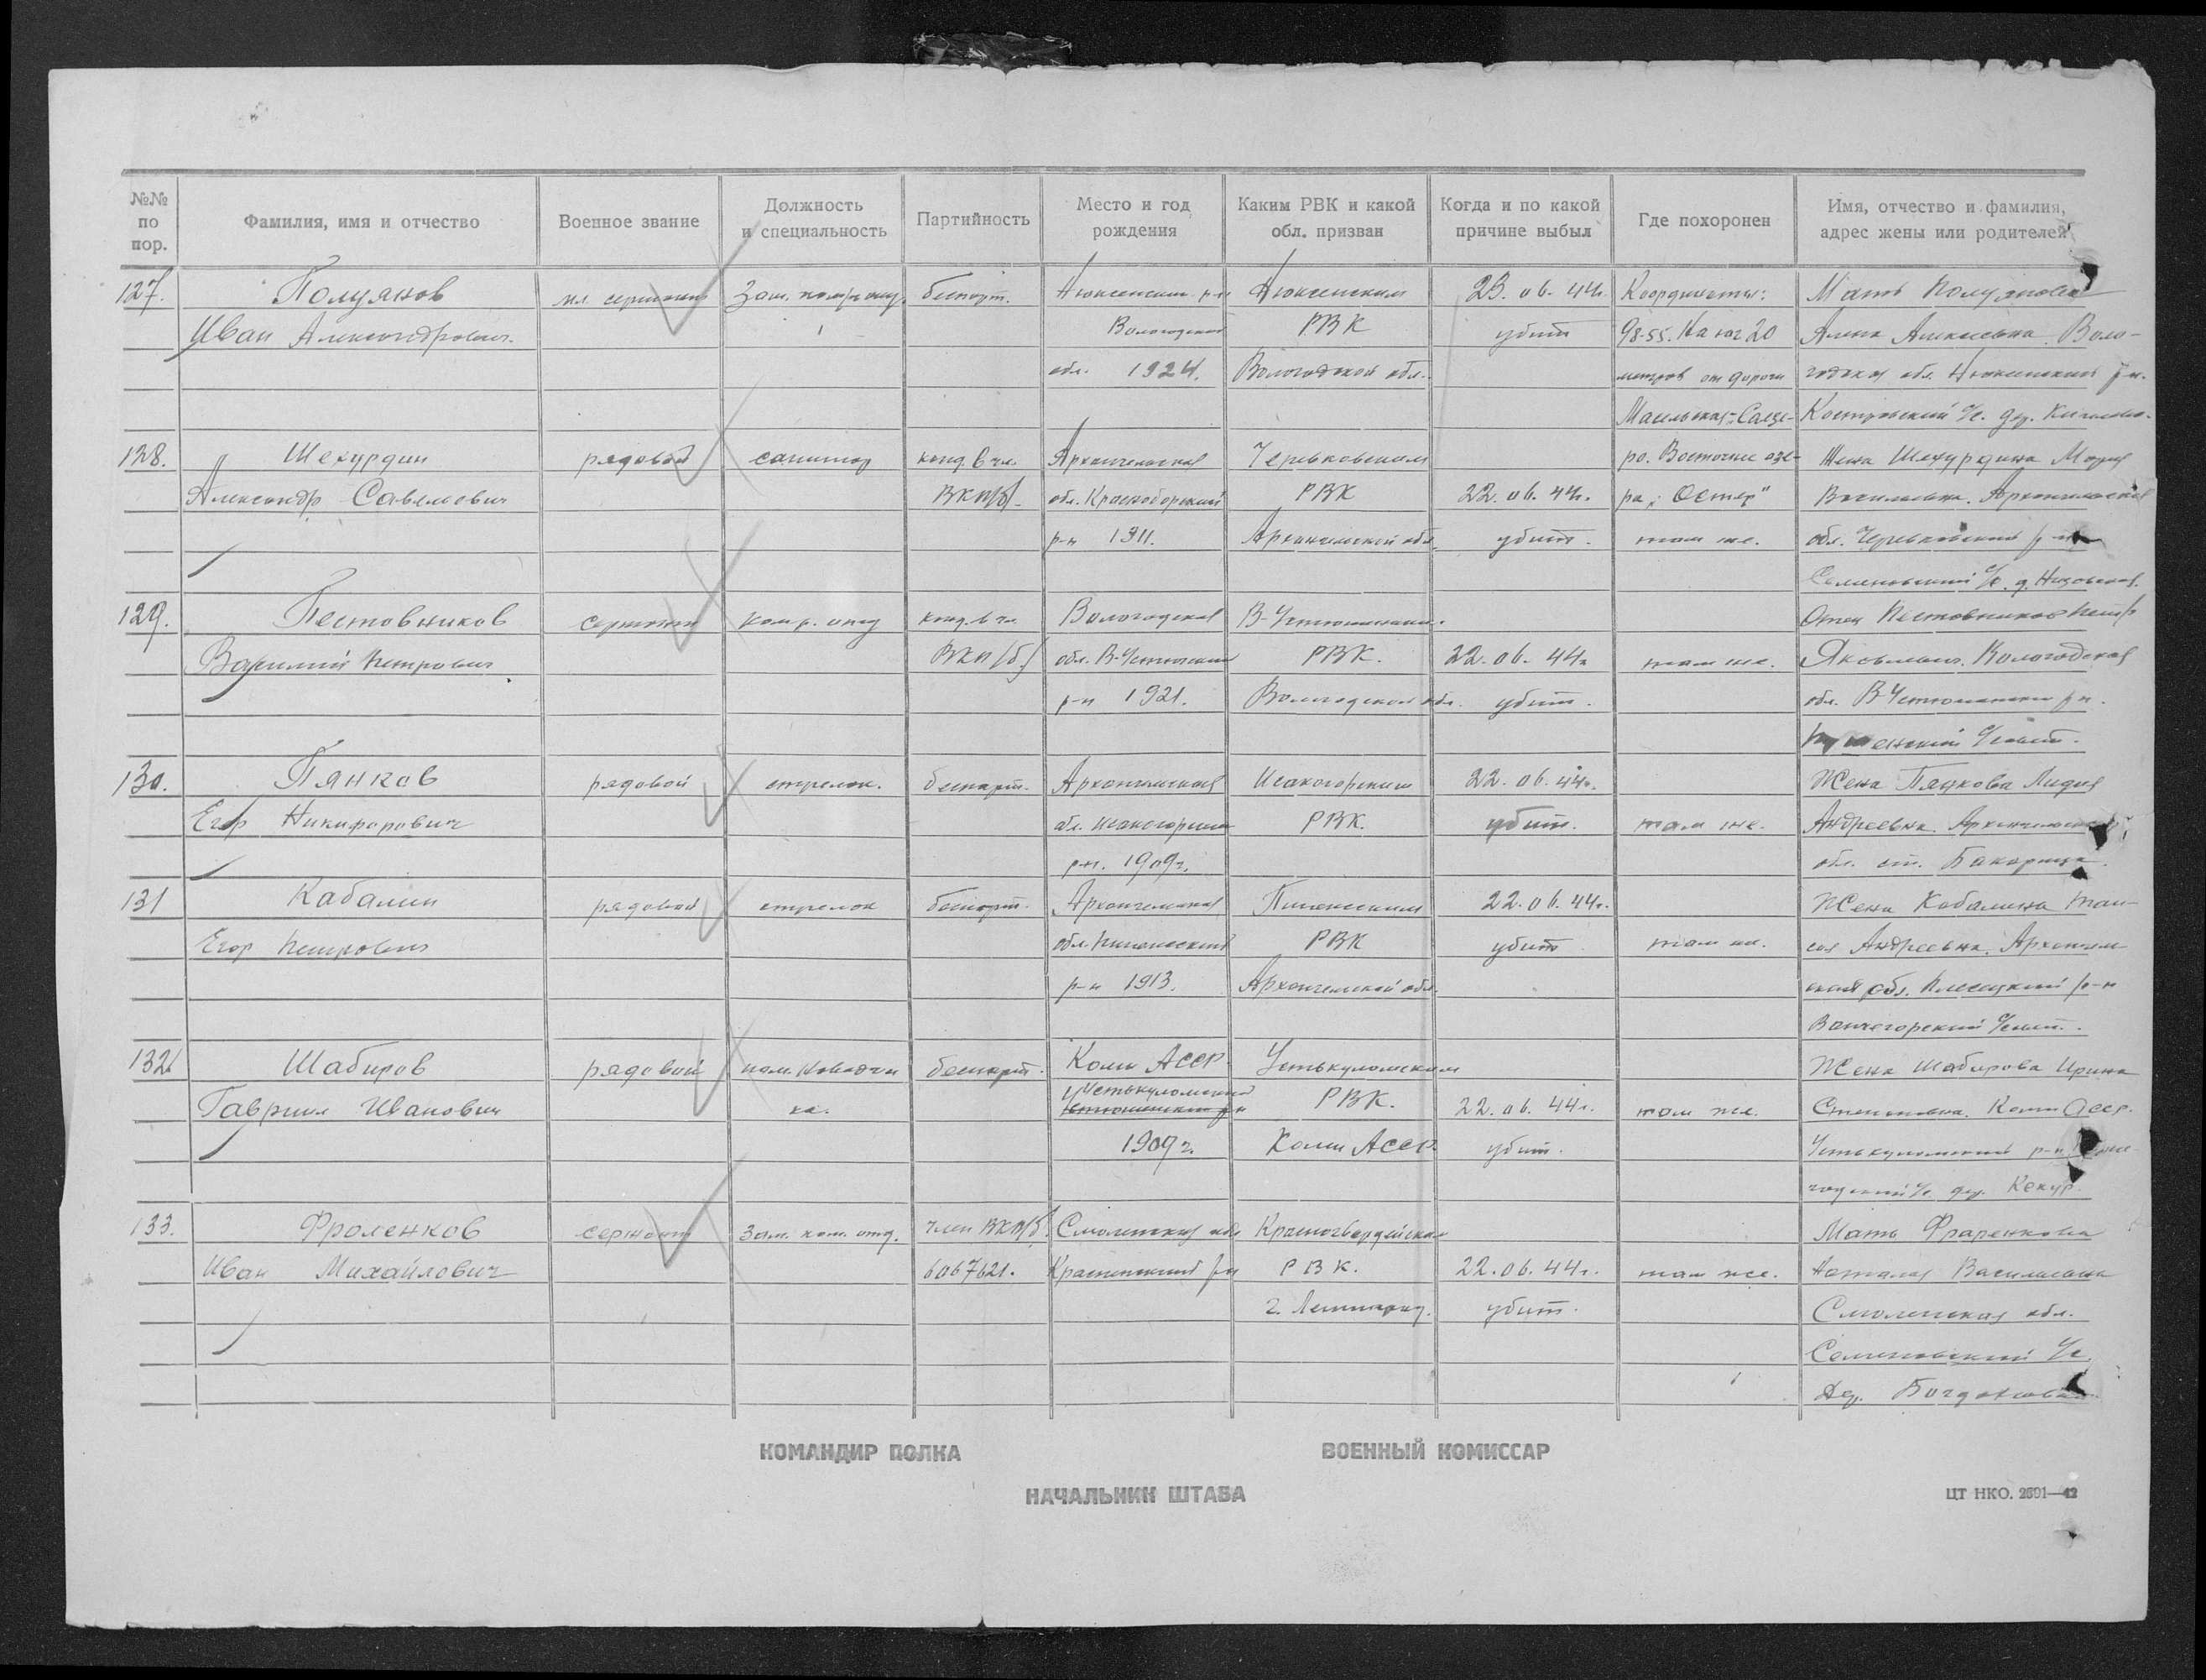 №№ по пор.
Фамилия, имя и отчество
Военное звание
Должность и специальность
Партийность
Место и год рождения
Каким РВК и какой обл. призван
Когда и по какой причине выбыл
Где похоронен
Имя, отчество и фамилия, адрес жены или родителей
127. Полуянов мл. сержант Зам. беспарт. Нюксенский р-н Нюксенским 23.06.44г. Координаты: Мать Полуянова
Иван Александрович Вологодская РВК убит 98-55. На юг 20 Алексеевна. Воло-
обл. 1924. Вологодской обл. метров от дороги годская обл. Нюксенский р-н.
Масельская-Сяезе- Костровский с/с. дер.
128. Шехурдин рядовой санитар канд. в чл. Архангельская Черевковским ро. Восточнее озе- Жена Шехурдина Мария
Александр Савельевич ВКП/б/. обл. Красноборский РВК 22.06.44г. ра „Остер" Васильевна. Архангельская
р-н 1911. Архангельской обл. убит. там же. обл. Черевковский р-н
с/с. д.
129. Пестовников сержант ком. отд канд. в чл. Вологодская В-Устюгским Отец Пестовников Петр
Василий Петрович ВКП/б/ обл. В-Устюгский РВК. 22.06.44г там же. Яковлевич. Вологодская
р-н 1921. Вологодской обл. убит. обл. В-Устюгский р-н.
130. Пянков рядовой стрелок. беспарт. Архангельская Исакогорским 22.06.44г. Жена Пянкова Лидия
Егор Никифорович обл. Исакогорский РВК. убит. там же. Андреевна. Архангельская
р-н. 1909г. обл. ст. Бакарица.
131 Кабалин рядовой стрелок беспарт. Архангельская Пинежским 22.06.44г. Жена Кабалина Таи-
Егор Петрович обл. Пинежский РВК убит там же. сия Андреевна. Архангель
р-н 1913. Архангельской обл. ская обл. Плесецкий р-н
132 Шабиров рядовой пом. наводчи беспарт. Коми АССР Устькуломским Жена Шабирова Ирина
Гавриил Иванович ка. Устькуломский РВК. 22.06.44г. там же. Степановна. Коми АССР.
1909г. Коми АССР. убит. Устькуломский р-н
дер. Кекур.
133. Фроленков сержант Зам. ком. отд. член ВКП/б/. Смоленская обл Красногвардейским Мать
Иван Михайлович 6067621. р-н РВК. 22.06.44г. там же. Наталья Васильевна
г. Ленинград. убит. Смоленская обл.
с/с.
Дер.
КОМАНДИР ПОЛКА
ВОЕННЫЙ КОМИССАР
НАЧАЛЬНИК ШТАБА
ЦТ НКО. 2691—42